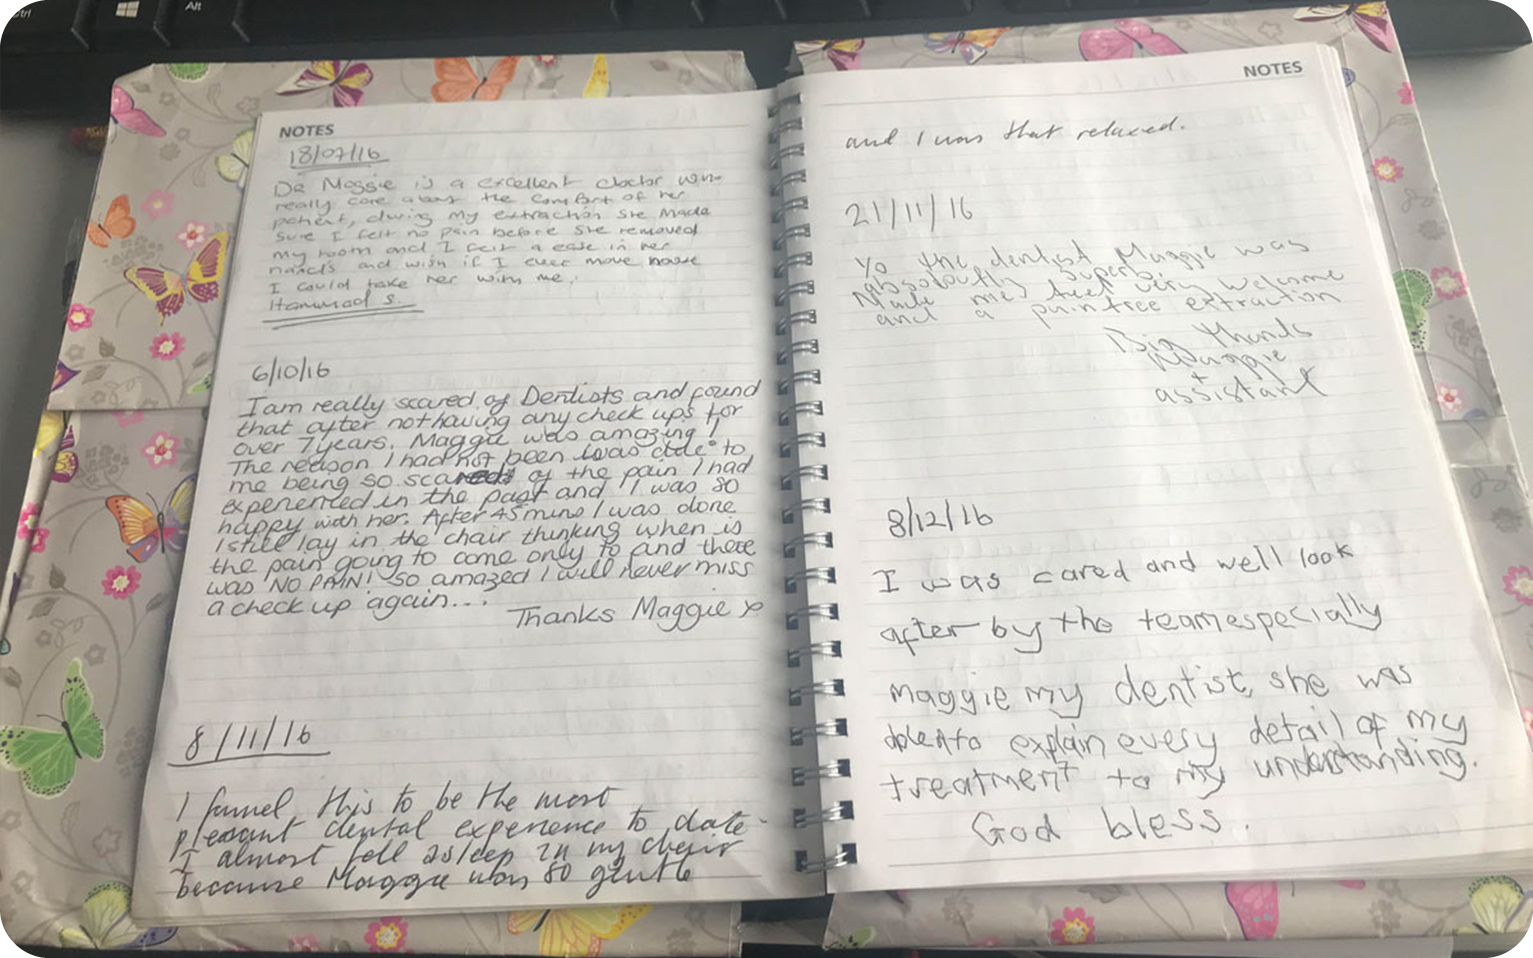 Ctrl
Alt
NOTES
18/07/16
Dr Maggie is a excellent doctor who
really care about the comfort of her
patient, during my extraction she made
sure I felt no pain before she removed
my tooth and I felt a ease in her
hands and wish if I ever move house
I could take her with me.
Hammad S.
6/10/16
I am really scared of Dentists and found
that after not having any check ups for
over 7 years. Maggie was amazing!
The reason I had not been was due to
me being so scared of the pain I had
experienced in the past and I was so
happy with her. After 45 mins I was done
I still lay in the chair thinking when is
the pain going to come only to find there
was NO PAIN! so amazed I will never miss
a check up again...
Thanks Maggie x
8/11/16
I found this to be the most
pleasant dental experience to date.
I almost fell asleep in my chair
because Maggie was so gentle
NOTES
and I was that relaxed.
21/11/16
the dentist Maggie was
absolutely superb.
Made me feel very welcome
and a painfree extraction
Big thanks
Maggie
+
assistant
8/12/16
I was cared and well look
after by the team especially
maggie my dentist, she was
to explain every detail of my
treatment to my understanding.
God bless.